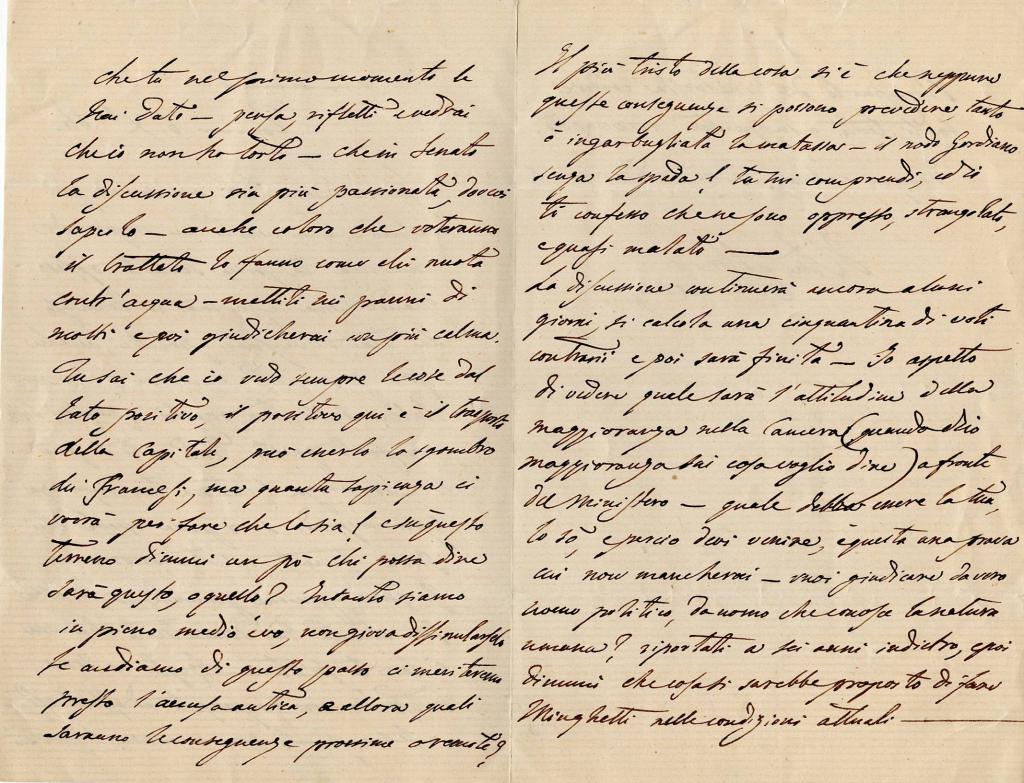 che tu nel primo momento le
hai dato — pensa, rifletti e vedrai
che io non ho torto — che in Senato
la discussione sia più passionata, dovevi
saperlo — anche coloro che voteranno
il trattato lo fanno come chi nuota
contr'acqua — mettiti ne' panni di
molti e poi giudicherai con più calma.
Tu sai che io vedo sempre le cose dal
lato positivo, il positivo qui è il trasporto
della Capitale, può esserlo lo sgombro
dei Francesi, ma quanta sapienza ci
vorrà per fare che lo sia! e in questo
terreno dimmi un pò chi possa dire
sarà questo, o quello? Intanto siamo
in pieno medio evo, non giova dissimularselo
se andiamo di questo passo ci meriteremo
presto l'accusa antica, e allora quali
saranno le conseguenze prossime o remote?
Il più tristo della cosa si è che neppure
queste conseguenze si possono prevedere, tanto
è ingarbugliata la matassa — il nodo Gordiano
senza la spada! tu mi comprendi, ed io
ti confesso che ne sono oppresso, strangolato,
e quasi malato —
La discussione continuerà ancora alcuni
giorni, si calcola una cinquantina di voti
contrarii e poi sarà finita — Io aspetto
di vedere quale sarà l'attitudine della
maggioranza nella Camera (quando dico
maggioranza sai cosa voglio dire) a fronte
del Ministero — quale debba essere la tua,
lo sò, e perciò devi venire, è questa una prova
cui non mancherai — vuoi giudicare da vero
uomo politico, da uomo che conosce la natura
umana? riportati a sei anni indietro, e poi
dimmi che cosa si sarebbe proposto di fare
Minghetti nelle condizioni attuali —